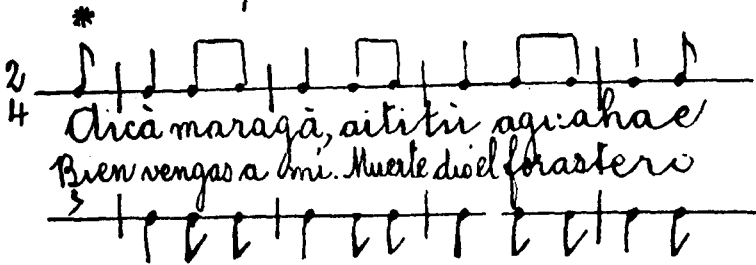 *
2
4
Aicà maragà, aititù agu:ahae
Bien vengas a mi. Muerte dio el forastero